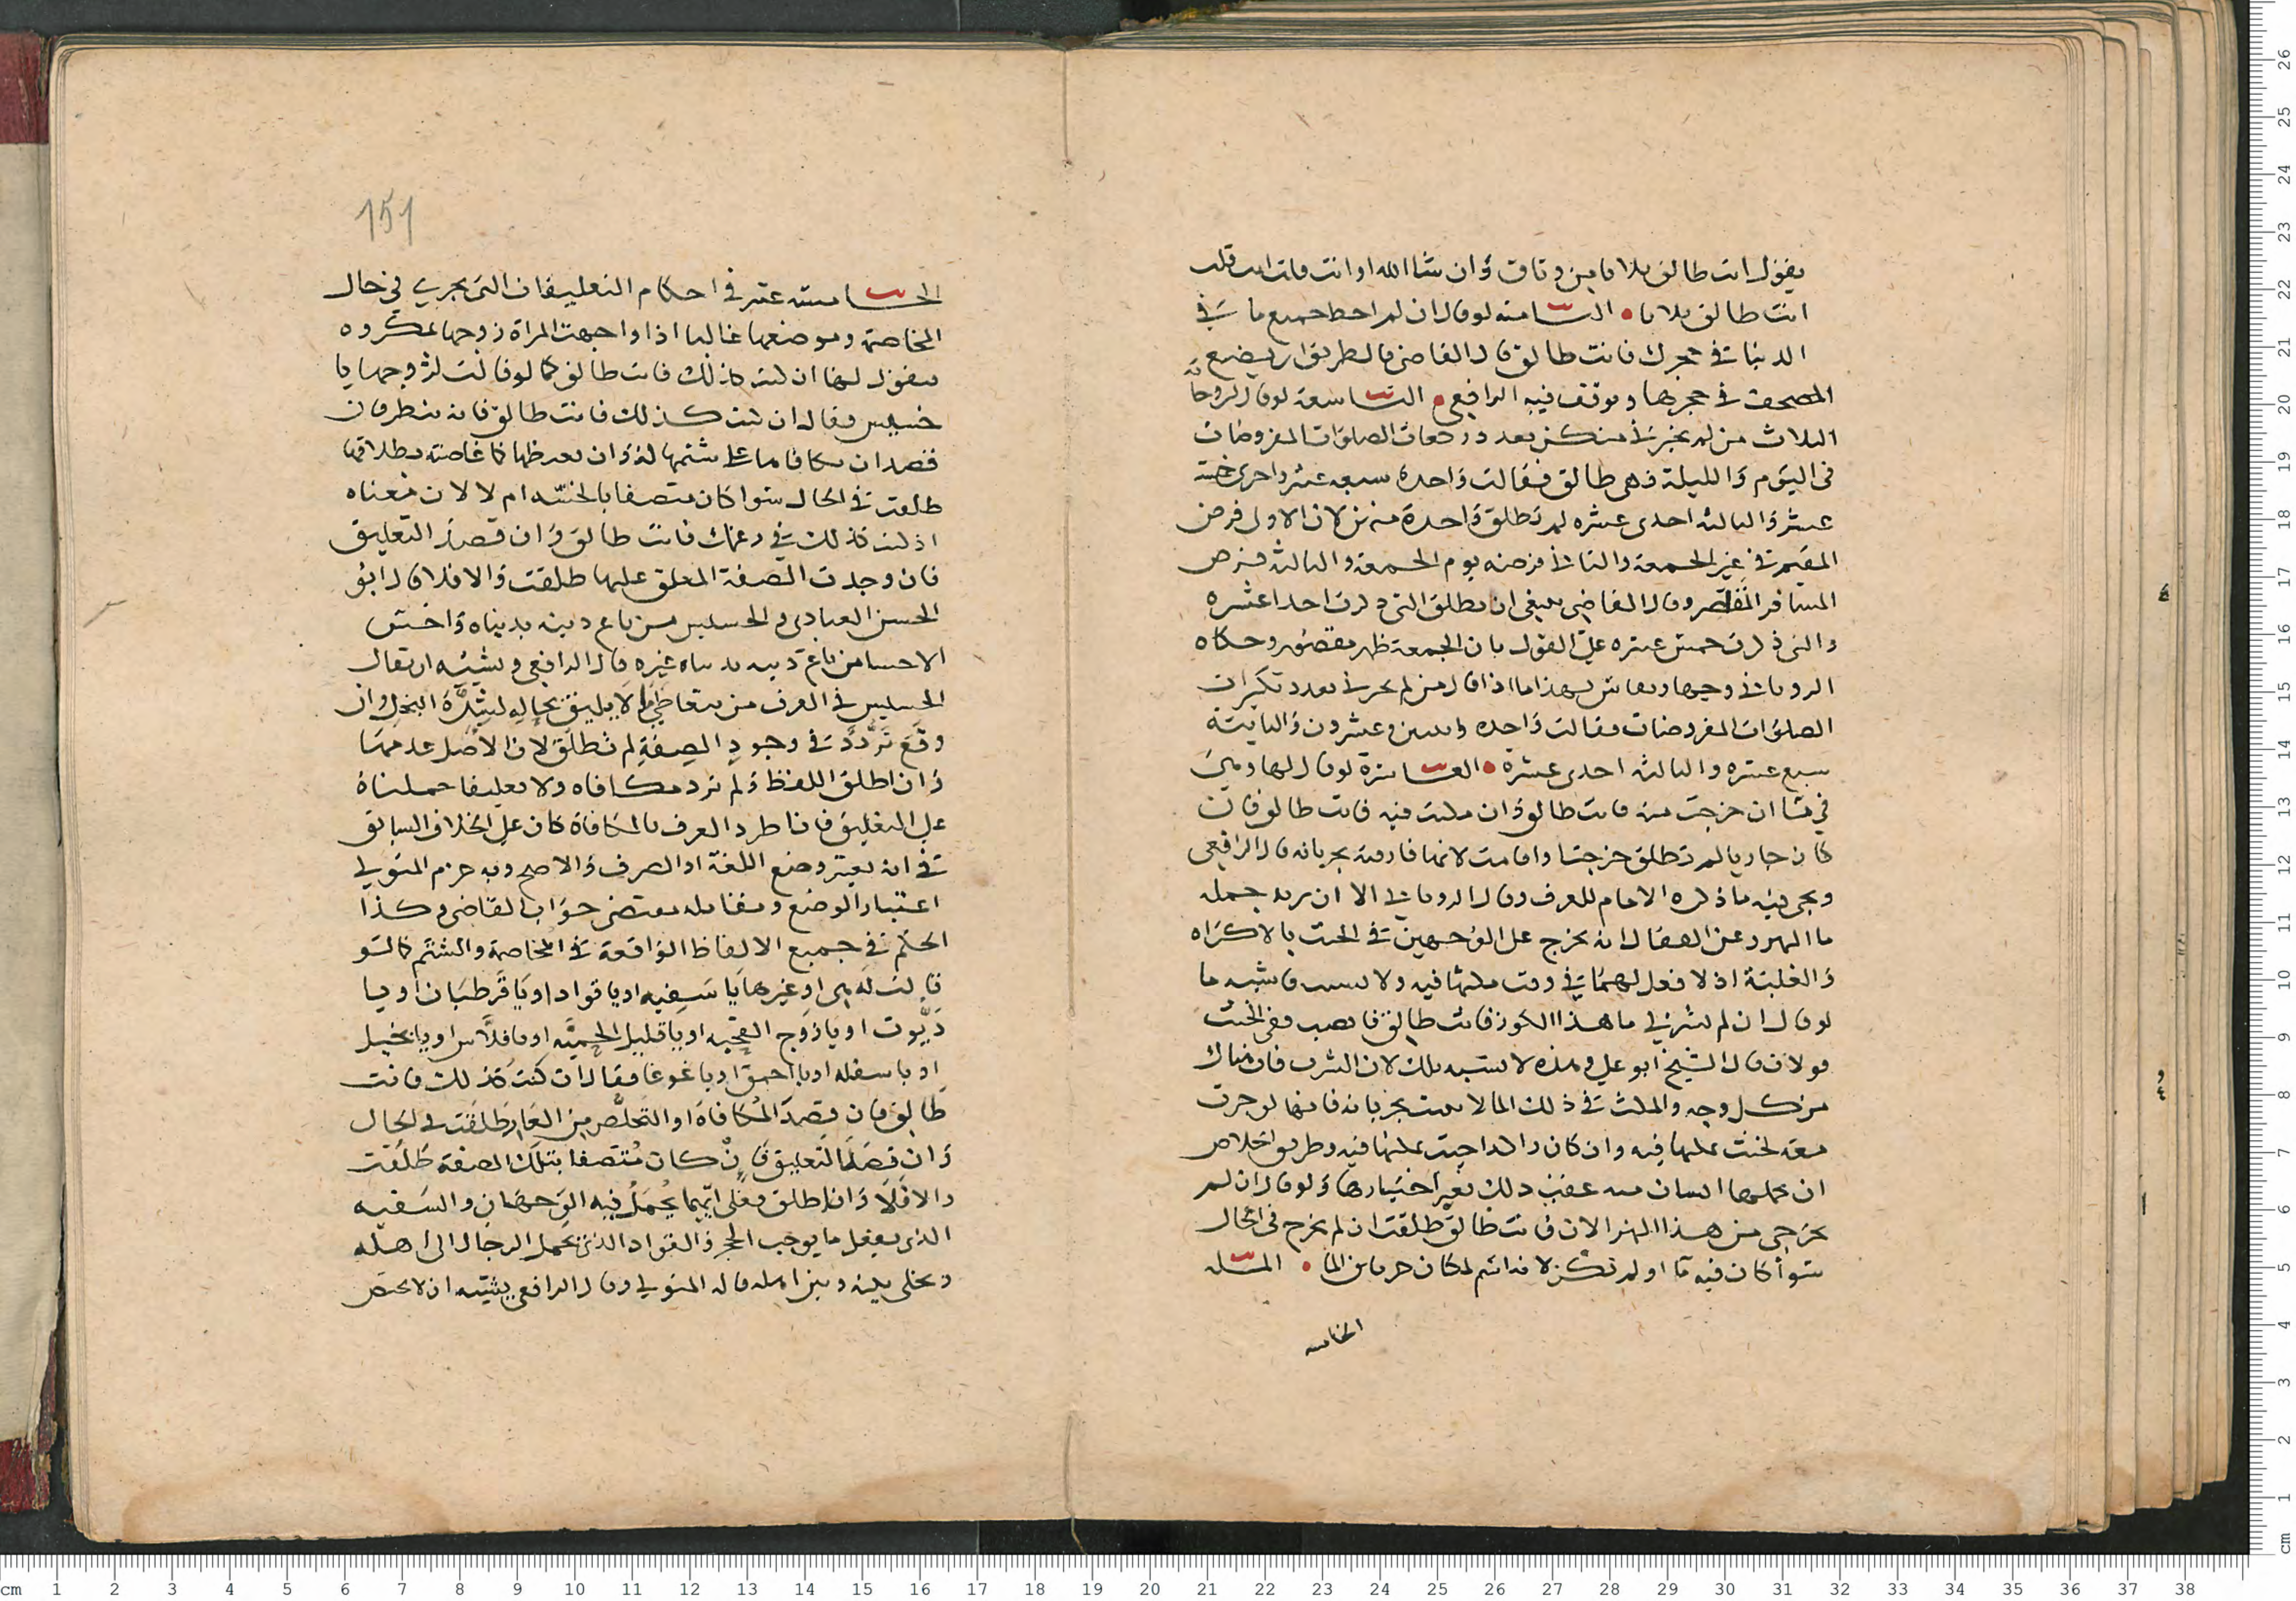 يقول انت طالق ثلاثا من وثاق وان شا الله او انت فانت قلت
انت طالق ثلاثا • الثامنه لو قال ان لم احط جميع ما في
الدنيا في حجرك فانت طالق قال القاضي فالطريق ان يضع
المصحف في حجرها وتوقف فيه الرافعي • التاسعة لو قال لزوجاته
الثلاث من لم تخبرني منكن بعدد ركعات الصلوات المفروضات
في اليوم والليلة فهي طالق فقالت واحدة سبعه عشر واخرى خمسة
عشر والثالثه احدى عشره لم تطلق واحدة منهن لان الاول فرض
المقيم في غير الجمعة والثاني فرضه يوم الجمعة والثالث فرض
المسافر القاصر وقال القاضي ينبغي ان تطلق التي ذكرت احدا عشره
والتي ذكرت خمس عشره على القول بان الجمعة ظهر مقصور وحكاه
الروياني وجها ويقاس بهذا ما اذا قال من لم تخبرني بعدد تكبيرات
الصلوات المفروضات فقالت واحده وعشرون والثانية
سبع عشره والثالثه احدى عشرة • العاشرة لو قال لها وهي
في ما ان خرجت منه فانت طالق وان مكثت فيه فانت طالق فان
كان جاريا لم تطلق خرجت او اقامت لانها فارقته بجريانه قال الرافعي
ويجي فيه ما ذكره الامام للعرف وقال الروياني الا ان يريد جمله
ما النهر وعن القفال انه يخرج على الوجهين في الحنث بالاكراه
والغلبة اذ لا فعل لهما في وقت مكثها فيه ولا
لو قال ان لم تشربي ما هذا الكوز فانت طالق فانصب ففي الحنث
قولان قال الشيخ ابو علي وهذه لا تشبه تلك لان الشرب فات هناك
من كل وجه والمكث في ذلك الما لا يفوت بجريانه فانها لو جرت
معه لحنث بمكثها فيه وان كان راكدا حنث بمكثها فيه وطريق الخلاص
ان يحملها انسان منه عقب ذلك بغير اختيارها ولو قال ان لم
تخرجي من هذا النهر الان فانت طالق طلقت ان لم تخرج في الحال
سوا كان فيه ما او لم تكن لا
المسله
الخامسه
151
الخامسة عشر في احكام التعليقات التي تجري في حال
المخاصمة وموضعها غالبا اذا واجهت المراة زوجها بمكروه
فيقول لها ان كنت كذلك فانت طالق كما لو قالت لزوجها يا
خسيس فقال ان كنت كذلك فانت طالق فانه ينظر فان
قصد ان يكافاها على شتمها له وان يغيظها كما غاضته بطلاقها
طلقت في الحال سوا كان متصفا بالخسه ام لا لان معناه
اذا كنت كذلك في زعمك فانت طالق وان قصد التعليق
فان وجدت الصفة المعلق عليها طلقت والا فلا قال ابو
الحسن العبادي والخسيس من باع دينه بدنياه واخس
الاخسا من باع دينه بدنياه غيره قال الرافعي ويشبه ان يقال
الخسيس في العرف من يتعاطى ما لا يليق بحاله لشدة البخل وان
وقع تردد في وجود الصفة لم تطلق لان الاصل عدمها
وان اطلق اللفظ ولم يرد مكافاه ولا تعليقا حملناه
على التعليق فان اطرد العرف بالمكافاة كان على الخلاف السابق
في انه يعتبر وضع اللغة او العرف والاصح وبه جزم المتولي
اعتبار الوضع ومقابله مقتضى جواب القاضي وكذا
الحكم في جميع الالفاظ الواقعة في المخاصمة والشتم كما لو
قالت له هي او غيرها يا سفيه او يا قواد او يا قرطبان او يا
ديوث او يا زوج القحبه او يا قليل الحميه او يا قلاس او يا بخيل
او يا سفله او يا احمق او يا غوغا فقال ان كنت كذلك فانت
طالق فان قصد المكافاة او التخلص من العار طلقت في الحال
وان قصد التعليق فان كان متصفا بتلك الصفة طلقت
والا فلا وان اطلق فعلى ايهما يحمل فيه الوجهان والسفيه
الذي يفعل ما يوجب الحجر والقواد الذي يحمل الرجال الى اهله
ويخلي بينه وبين اهله قاله المتولي وقال الرافعي يشبه ان لا يختص